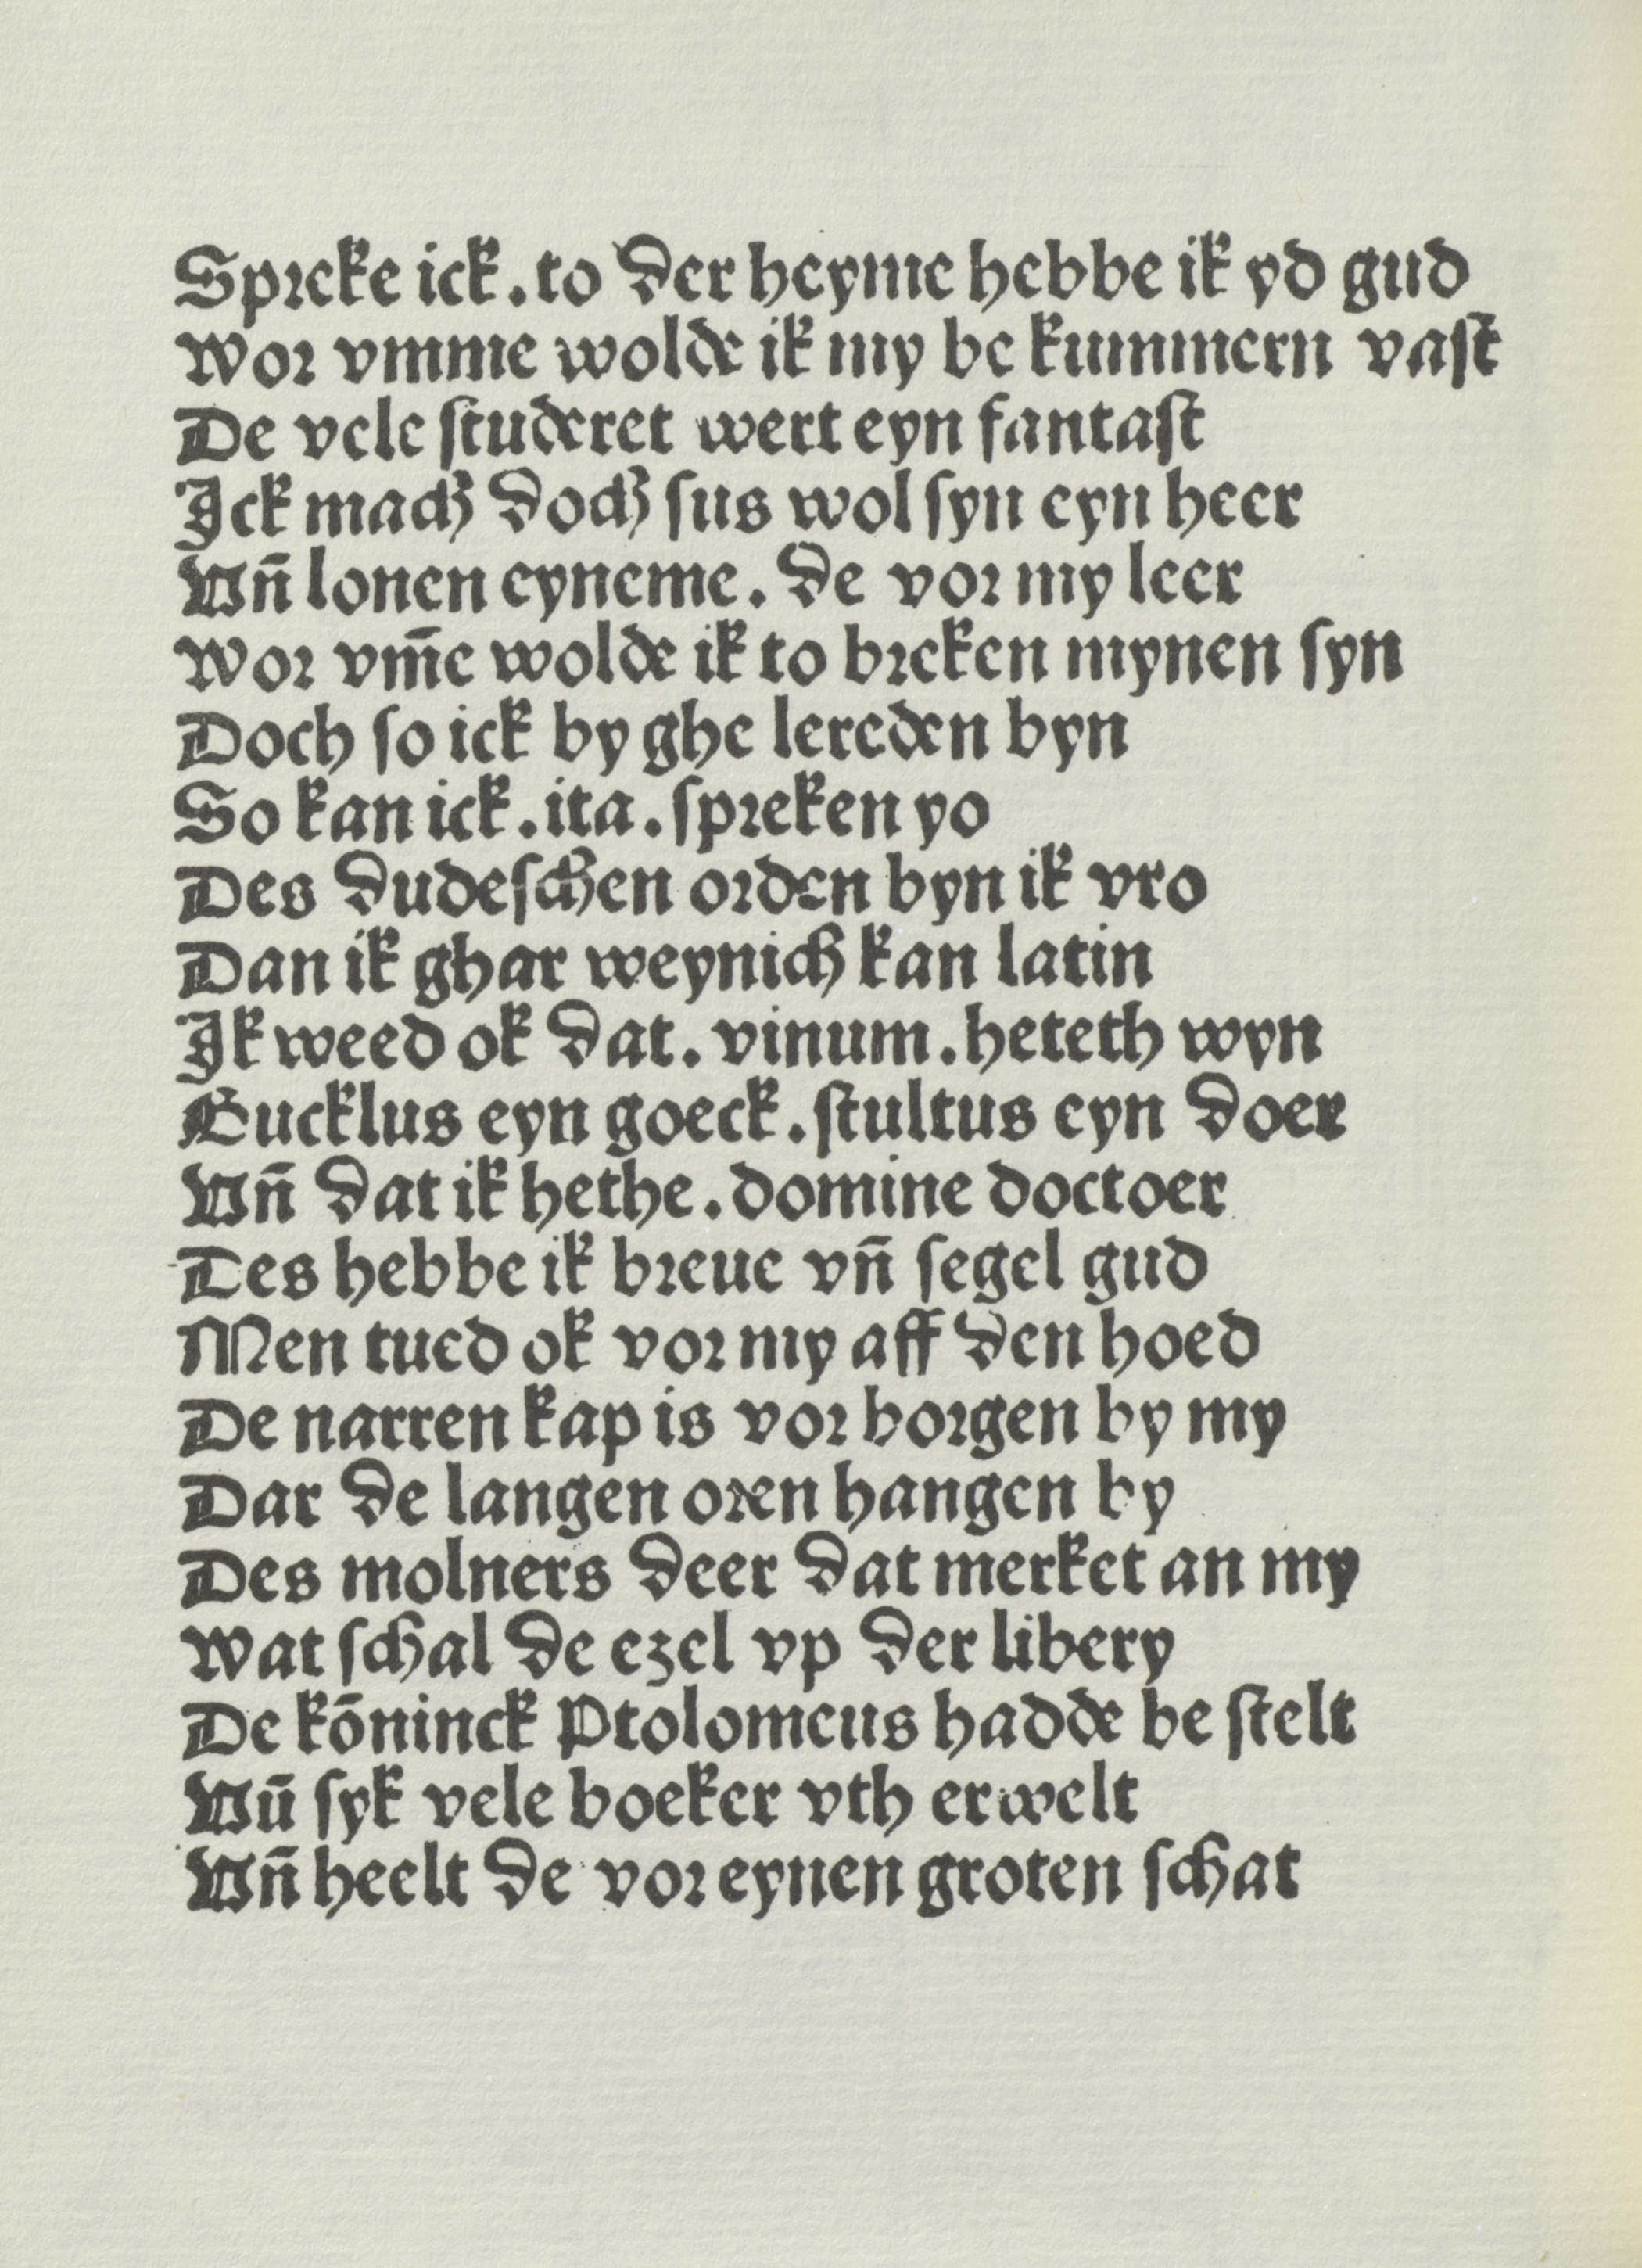 Spreke ick. to der heyme hebbe ik yd gud
Wor vmme wolde ik my be kummern vast
De vele studeret wert eyn fantast
Jck mach doch sus wol syn eyn heer
Vn̄ lonen eyneme. de vor my leer
Wor vm̄e wolde ik to breken mynen syn
Doch so ick by ghe lereden byn
So kan ick. ita. spreken yo
Des dudeschen orden byn ik vro
Dan ik ghar weynich kan latin
Jk weed ok dat. vinum. heteth wyn
Gucklus eyn goeck. stultus eyn doer
Vn̄ dat ik hethe. domine doctoer
Des hebbe ik breue vn̄ segel gud
Men tued ok vor my aff den hoed
De narren kap is vor borgen by my
Dar de langen oren hangen by
Des molners deer dat merket an my
Wat schal de ezel vp der libery
De kōninck Ptolomeus hadde be stelt
Vū syk vele boeker vth erwelt
Vn̄ heelt de vor eynen groten schat